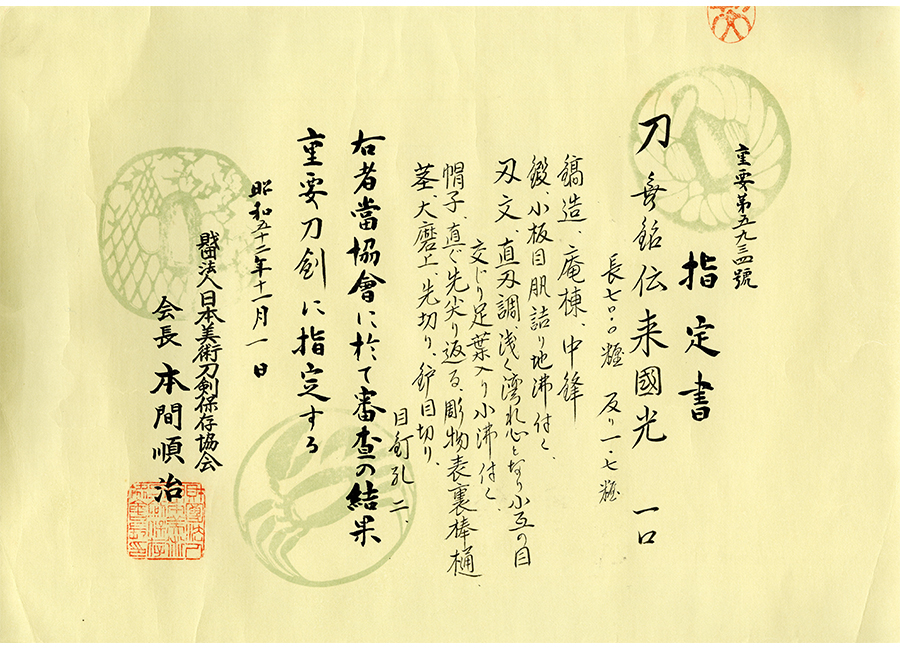 重要第五九三四號
指定書
刀 無銘伝来國光 一口
長七〇・〇糎 反り一・七糎
鎬造、庵棟、中鋒
鍛、小板目肌詰り地沸付く、
刃文、直刃調浅く湾れ心となり小互の目
交じり足葉入り小沸付く、
帽子、直ぐ先尖り返る、彫物表裏棒樋、
茎、大磨上、先切り、鈩目切り、
目釘孔二、
右者當協會に於て審査の結果
重要刀剣に指定する
昭和五十二年十一月一日
財団法人日本美術刀剣保存協会
会長 本間順治